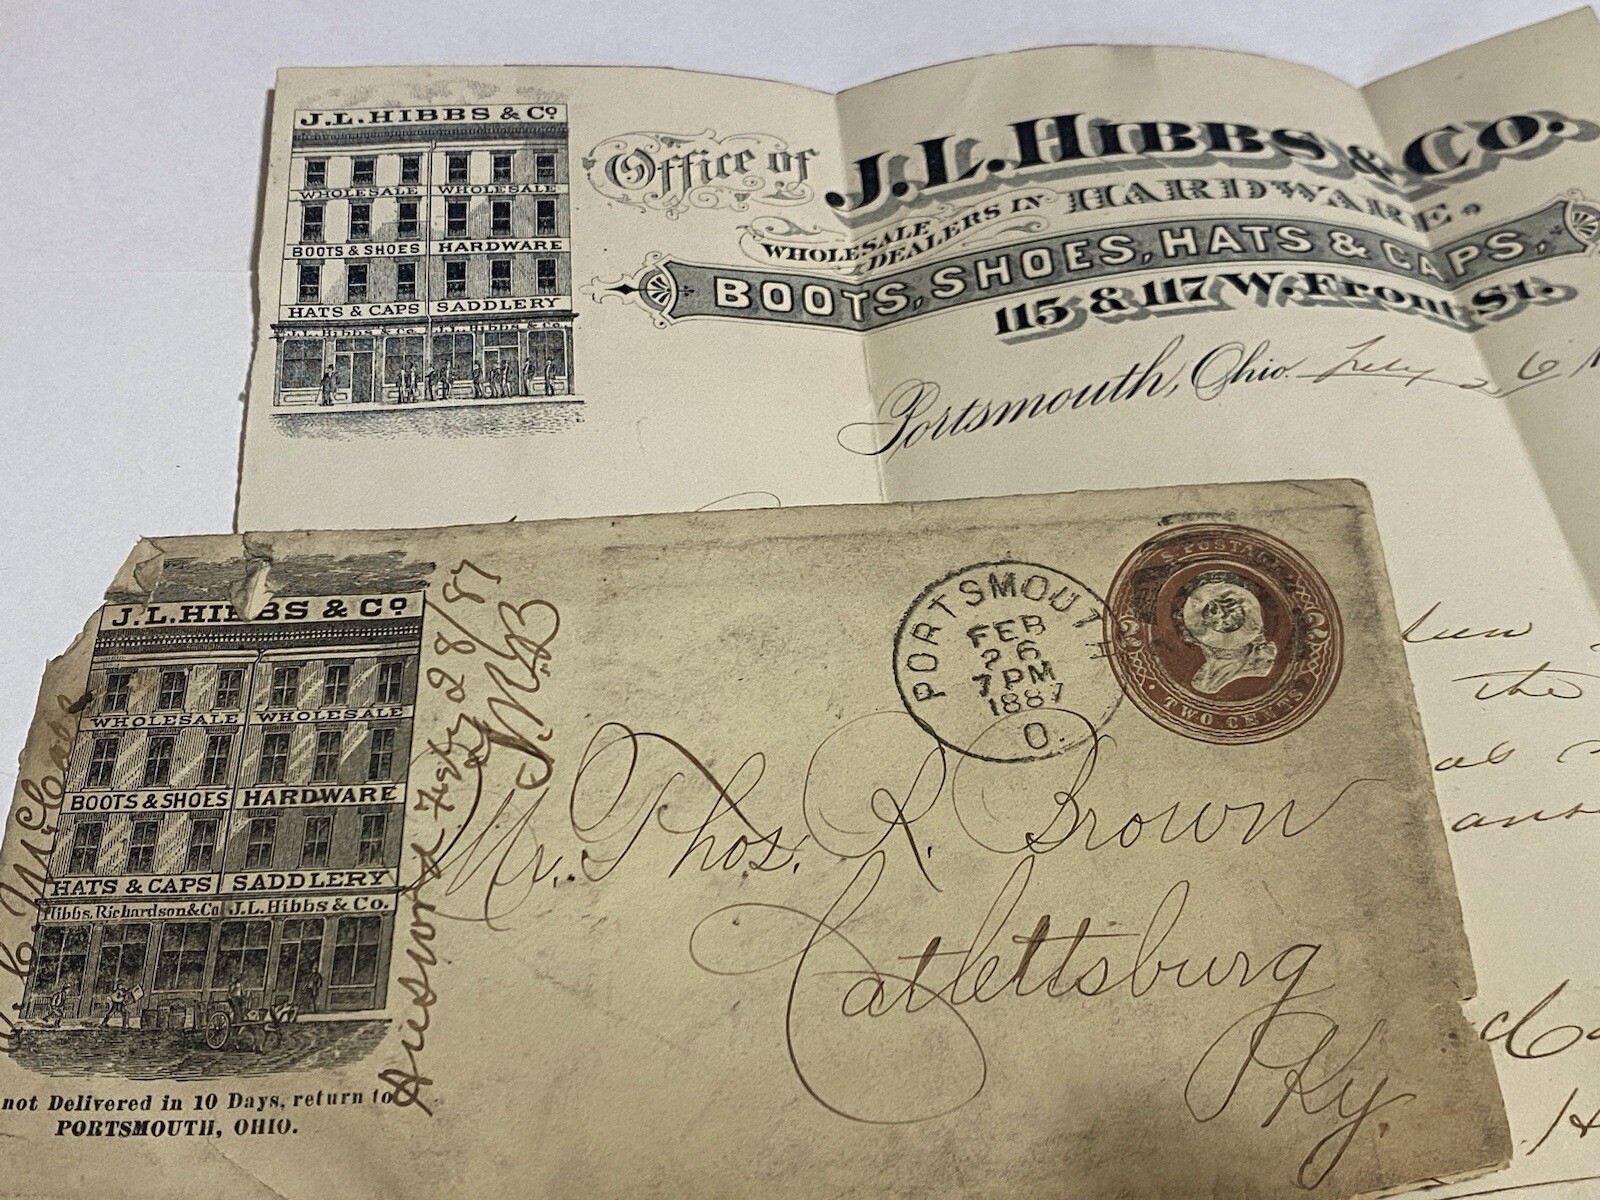 J.L.HIBBS & Cº
WHOLESALE WHOLESALE
BOOTS & SHOES HARDWARE
HATS & CAPS SADDLERY
J.L. Hibbs & Co. J.L. Hibbs & Co.
Office of J.L.HIBBS & CO.
WHOLESALE DEALERS IN HARDWARE,
BOOTS, SHOES, HATS & CAPS,
115 & 117 W. Front St.
Portsmouth, Ohio. Feby 26
the
J.L.HIBBS & Cº
WHOLESALE WHOLESALE
BOOTS & SHOES HARDWARE
HATS & CAPS SADDLERY
Hibbs, Richardson & Co J.L. Hibbs & Co.
not Delivered in 10 Days, return to
PORTSMOUTH, OHIO.
Feby 28/87
PORTSMOUTH
FEB
26
7 PM
1887
O.
U.S. POSTAGE
2 2
TWO CENTS
Mr. Thos. R. Brown
Catlettsburg
Ky.